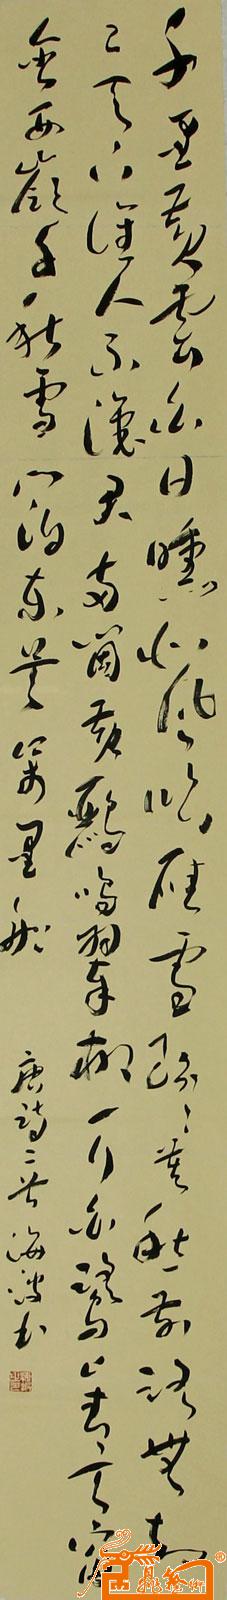 千里黄云白日曛北风吹雁雪纷纷莫愁前路无知
己天下谁人不识君两个黄鹂鸣翠柳一行白鹭上青天窗
含西岭千秋雪门泊东吴万里船
唐诗二首海波书